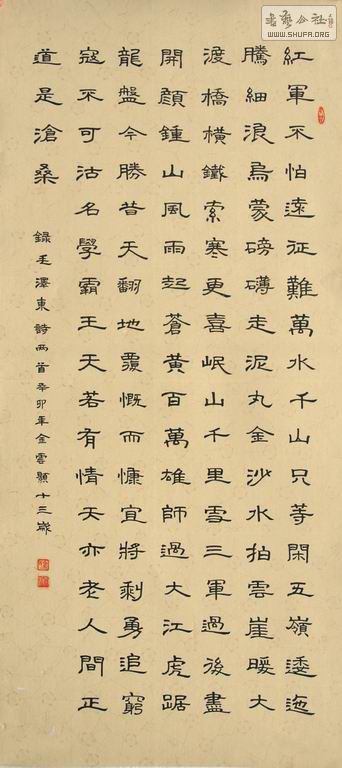 紅軍不怕遠征難萬水千山只等閑五嶺逶迤
騰細浪烏蒙磅礴走泥丸金沙水拍雲崖暖大
渡橋橫鐵索寒更喜岷山千里雪三軍過後盡
開顏鍾山風雨起蒼黃百萬雄師過大江虎踞
龍盤今勝昔天翻地覆慨而慷宜將剩勇追窮
寇不可沽名學霸王天若有情天亦老人間正
道是滄桑
錄毛澤東詩兩首辛卯年金雲顥十三歲
WWW.SHUFA.ORG